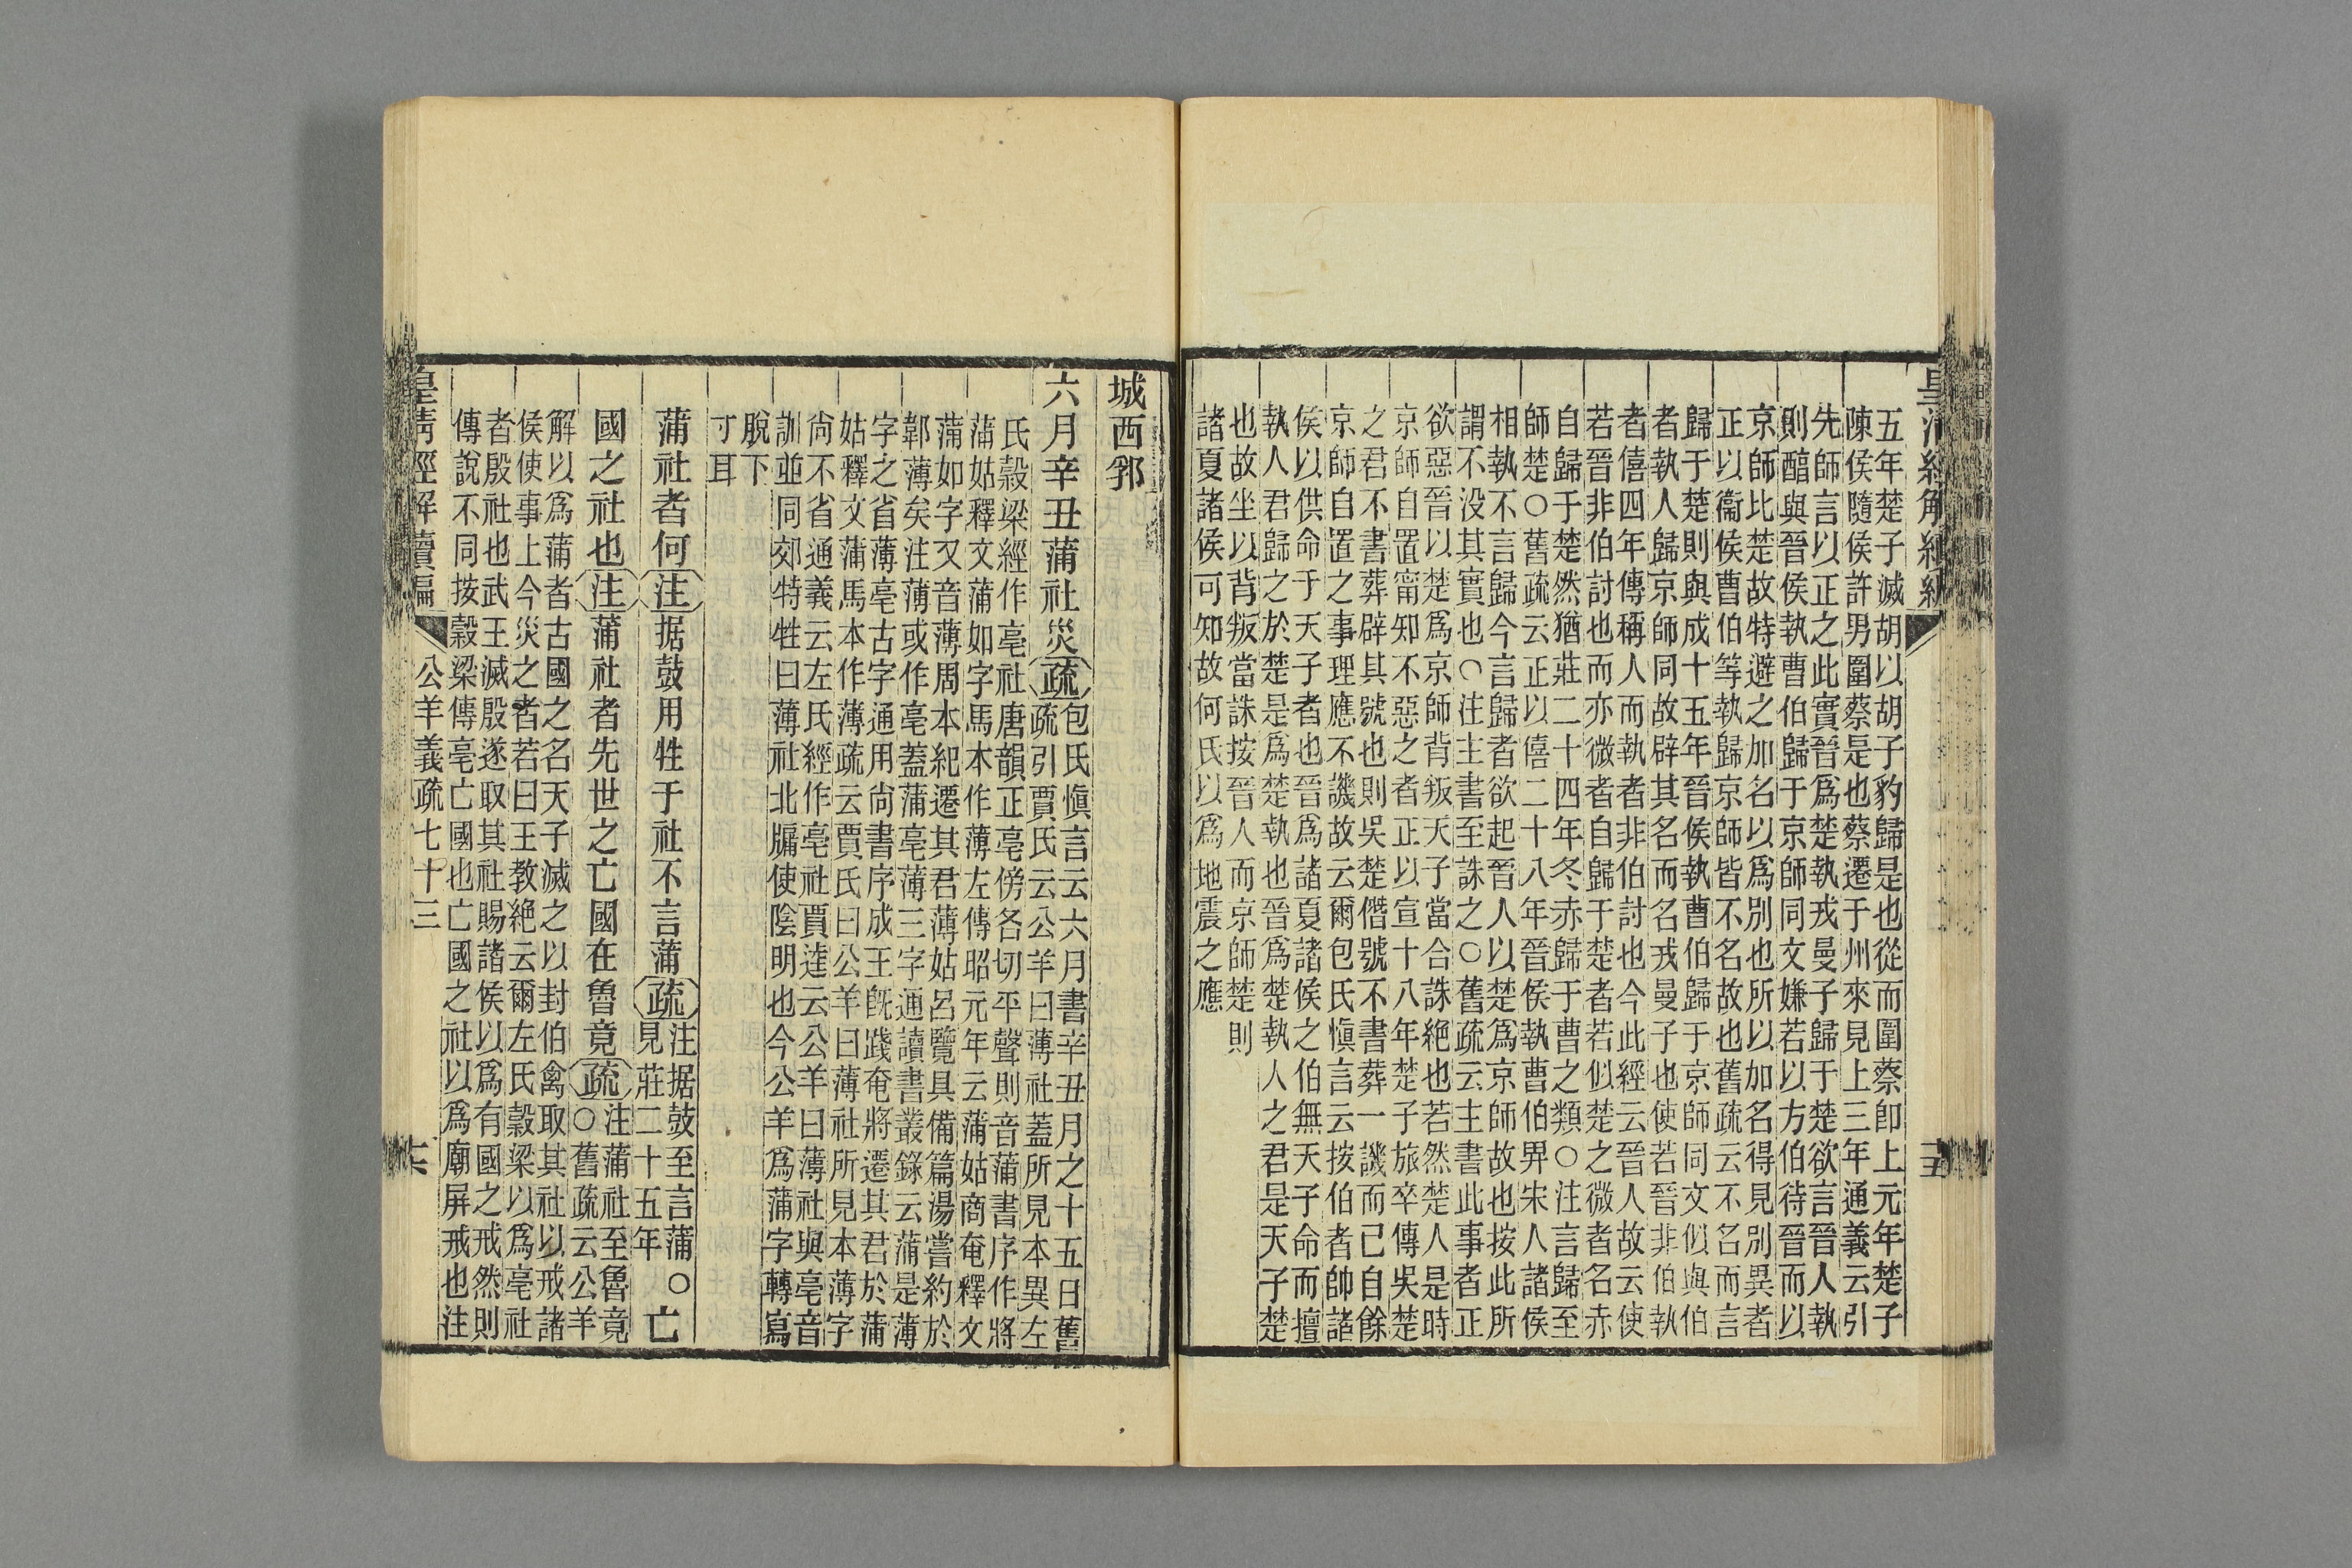 五年楚子滅胡以胡子豹歸是也從而圍蔡卽上元年楚子
陳侯隨侯許男圍蔡是也蔡遷于州來見上三年通義云引
先師言以正之此實晉爲楚執戎曼子歸于楚欲言晉人執
則醕與晉侯執曹伯歸于京師同文嫌若以方伯待晉而以
京師比楚故特避之加名以爲別也所以加名得見別異者
正以衞侯曹伯等執歸京師皆不名故也舊疏云不名而言
歸于楚則與成十五年晉侯執曹伯歸于京師同文似與伯
者執人歸京師同故辟其名而名戎曼子也使若晉非伯執
者僖四年傳稱人而執者非伯討也今此經云晉人故云使
若晉非伯討也而亦微者自歸于楚者若似楚之微者名赤
自歸于楚然猶莊二十四年冬赤歸于曹之類○注言歸至
師楚○舊疏云正以僖二十八年晉侯執曹伯畀宋人諸侯
相執不言歸今言歸者欲起晉人以楚爲京師故也按此所
謂不没其實也○注主書至誅之○舊疏云主書此事者正
欲惡晉以楚爲京師背叛天子當合誅絕也若然楚人是時
京師自置甯知不惡之者正以宣十八年楚子旅卒傳吳楚
之君不書葬辟其號也則吳楚僭號不書葬一譏而已自餘
京師自置之事理應不譏故云爾包氏愼言云按伯者帥諸
侯以供命于天子者也晉爲諸夏諸侯之伯無天子命而擅
執人君歸之於楚是爲楚執也晉爲楚執人之君是天子楚
也故坐以背叛當誅按晉人而京師楚則
諸夏諸侯可知故何氏以爲地震之應
城西郛
六月辛丑蒲社災疏包氏愼言云六月書辛丑月之十五日舊
疏引賈氏云公羊曰薄社蓋所見本異左
氏穀梁經作亳社唐韻正亳傍各切平聲則音蒲書序作將
蒲姑釋文蒲如字馬本作薄左傳昭元年云蒲姑商奄釋文
蒲如字又音薄周本紀遷其君薄姑呂覽具備篇湯嘗約於
鄣薄矣注薄或作亳蓋蒲亳薄三字通讀書叢錄云蒲是薄
字之省薄亳古字通用尙書序成王旣踐奄將遷其君於蒲
姑釋文蒲馬本作薄疏云賈氏曰公羊曰薄社所見本薄字
尙不省通義云左氏經作亳社賈逵云公羊曰薄社與亳音
訓並同郊特牲曰薄社北牖使陰明也今公羊爲蒲字轉寫
脫下
寸耳
蒲社者何注据鼓用牲于社不言蒲疏注据鼓至言蒲○
見莊二十五年亡
國之社也注蒲社者先世之亡國在魯竟疏注蒲社至魯竟
○舊疏云公羊
解以爲蒲者古國之名天子滅之以封伯禽取其社以戒諸
侯使事上今災之者若曰王教絕云爾左氏穀梁以爲亳社
者殷社也武王滅殷遂取其社賜諸侯以爲有國之戒然則
傳說不同按穀梁傳亳亡國也亡國之社以爲廟屏戒也注
公羊義疏七十三